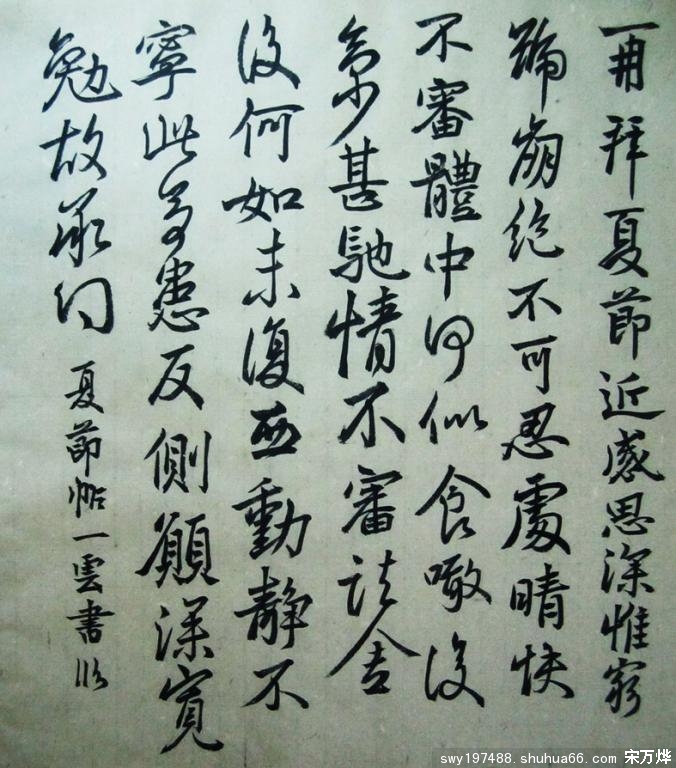 再拜夏節近感思深惟窮
號崩絕不可忍處晴快
不審體中何似食噉復
多少甚馳情不審諸舍
復何如未復西動靜不
寧此為患反側願深寬
勉故承问
夏節帖一雲書臨
swy197488. shuhua66. com 宋万烨